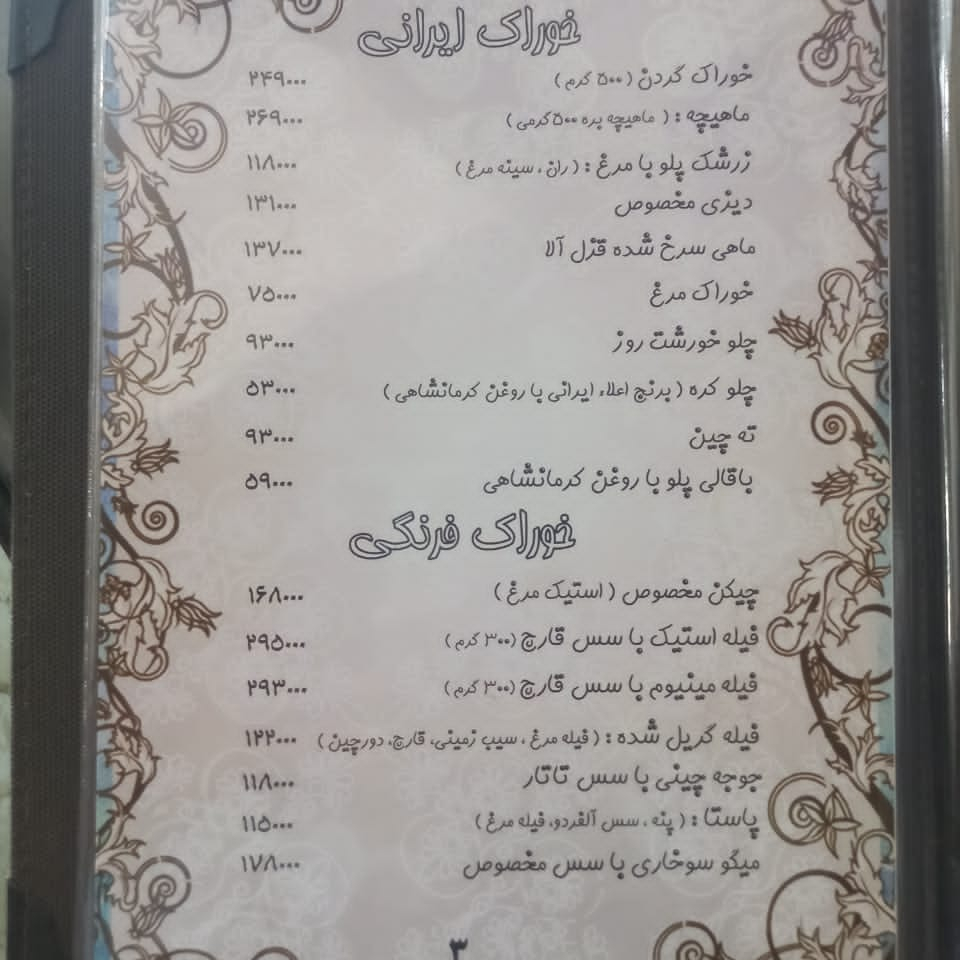 خوراک ایرانی
خوراک گردن (۵۰۰ گرم) ۲۴۹۰۰۰
ماهیچه : ( ماهیچه بره ۵۰۰گرمی ) ۲۶۹۰۰۰
زرشک پلو با مرغ : ( ران ، سینه مرغ ) ۱۱۸۰۰۰
دیزی مخصوص ۱۳۱۰۰۰
ماهی سرخ شده قزل آلا ۱۳۷۰۰۰
خوراک مرغ ۷۵۰۰۰
چلو خورشت روز ۹۳۰۰۰
چلو کره ( برنج اعلاء ایرانی با روغن کرمانشاهی ) ۵۳۰۰۰
ته چین ۹۳۰۰۰
باقالی پلو با روغن کرمانشاهی ۵۹۰۰۰
خوراک فرنگی
چیکن مخصوص ( استیک مرغ ) ۱۶۸۰۰۰
فیله استیک با سس قارچ (۳۰۰ گرم ) ۲۹۵۰۰۰
فیله مینیوم با سس قارچ (۳۰۰ گرم ) ۲۹۳۰۰۰
فیله گریل شده : ( فیله مرغ ، سیب زمینی، قارچ، دورچین ) ۱۲۲۰۰۰
جوجه چینی با سس تاتار ۱۱۸۰۰۰
پاستا : ( پنه ، سس آلفردو، فیله مرغ ) ۱۱۵۰۰۰
میگو سوخاری با سس مخصوص ۱۷۸۰۰۰
۳